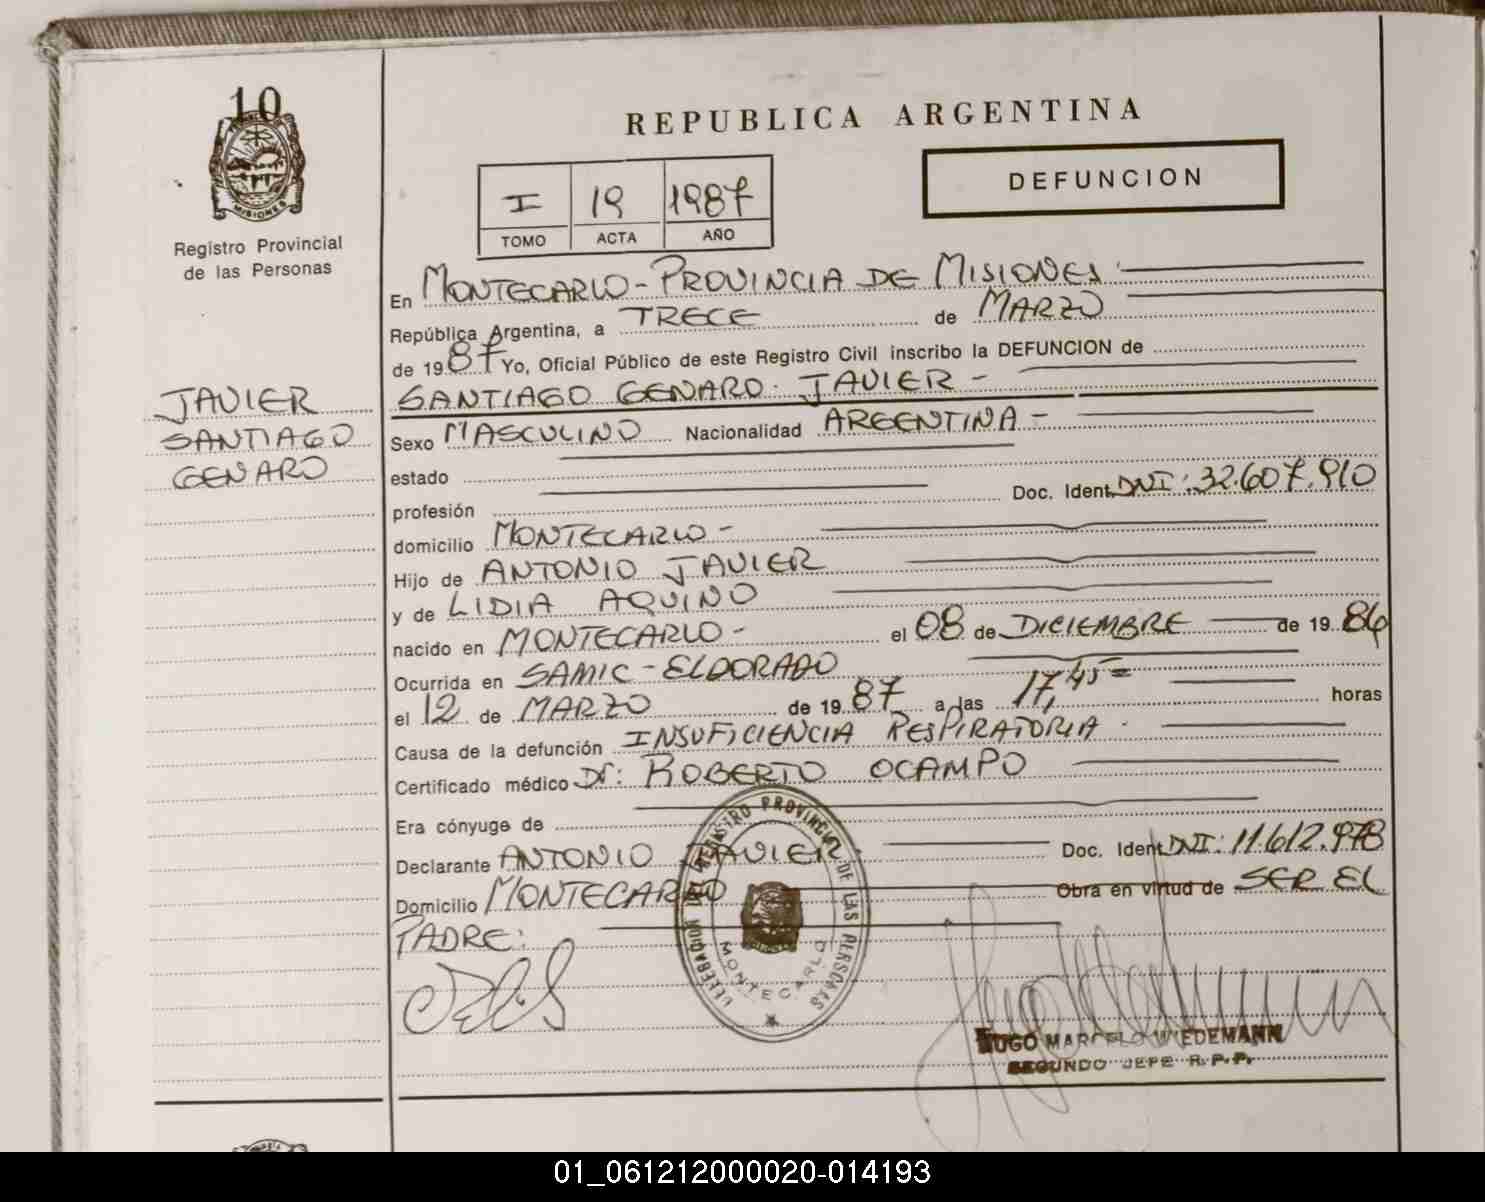 10
MISIONES
Registro Provincial
de las Personas
JAVIER
SANTIAGO
GENARO
REPUBLICA ARGENTINA
I 19 1987
TOMO ACTA AÑO
DEFUNCION
En MONTECARLO - PROVINCIA DE MISIONES
República Argentina, a TRECE de MARZO
de 1987 Yo, Oficial Público de este Registro Civil inscribo la DEFUNCION de
SANTIAGO GENARO JAVIER -
Sexo MASCULINO Nacionalidad ARGENTINA -
estado
profesión Doc. Ident. DNI: 32.607.910
domicilio MONTECARLO -
Hijo de ANTONIO JAVIER
y de LIDIA AQUINO
nacido en MONTECARLO - el 08 de DICIEMBRE de 1986
Ocurrida en SAMIC - ELDORADO
el 12 de MARZO de 1987 a las 17,45= horas
Causa de la defunción INSUFICIENCIA RESPIRATORIA
Certificado médico Dr: ROBERTO OCAMPO
Era cónyuge de
Declarante ANTONIO JAVIER Doc. Ident. DNI: 11.612.978
Domicilio MONTECARLO Obra en virtud de SER EL
PADRE:
DELEGACION DEL REGISTRO PROVINCIAL DE LAS PERSONAS
MONTECARLO
HUGO MARCELO WIEDEMANN
SEGUNDO JEFE R.P.P.
01_061212000020-014193